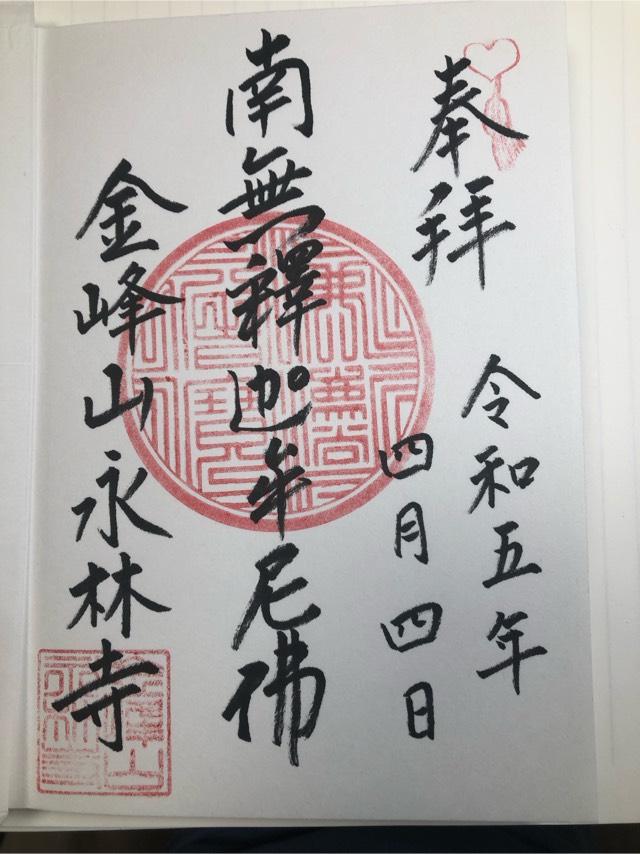 奉拝
令和五年
四月四日
南無釋迦牟尼佛
金峰山永林寺